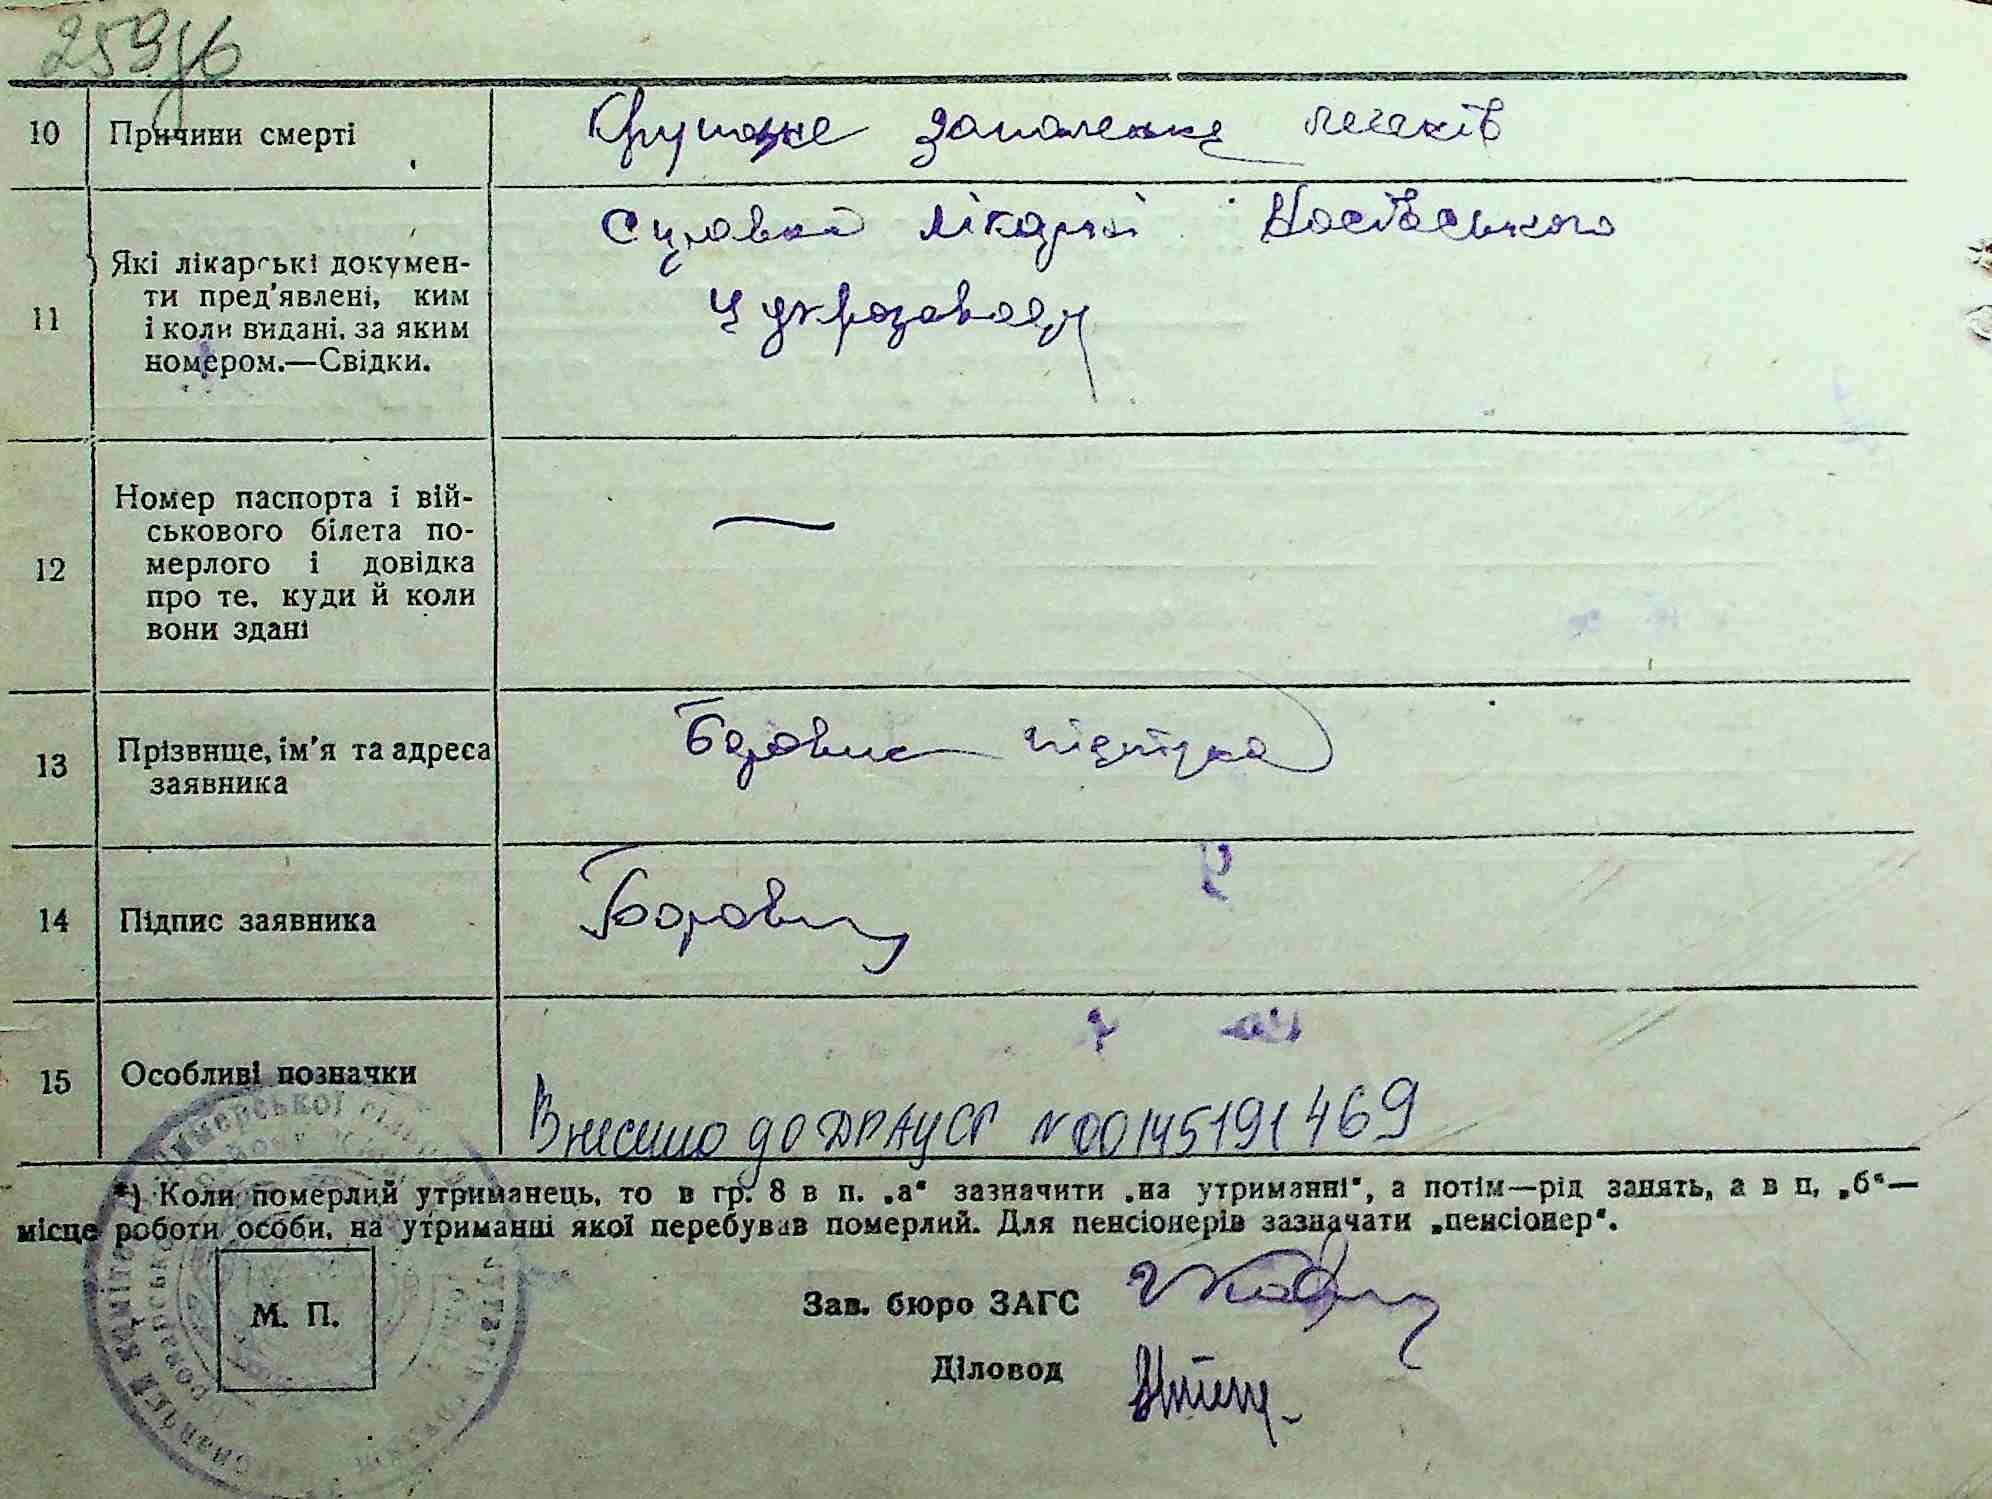 259/б
10 Причини смерті Крупозне запаленнє легенів
11 Які лікарські докумен-
ти пред'явлені, ким
і коли видані, за яким
номером.—Свідки.
Справка лікарні Носівського
цукрозаводу
12 Номер паспорта і вій-
ськового білета по-
мерлого і довідка
про те, куди й коли
вони здані
—
13 Прізвище, ім'я та адреса
заявника
14 Підпис заявника
15 Особливі позначки
Внесено до ДРАЦСГ №00145191469
*) Коли померлий утриманець, то в гр. 8 в п. „а“ зазначити „на утриманні“, а потім—рід занять, а в п. „б“—
місце роботи особи, на утриманні якої перебував померлий. Для пенсіонерів зазначати „пенсіонер“.
М. П.
Зав. бюро ЗАГС
Діловод